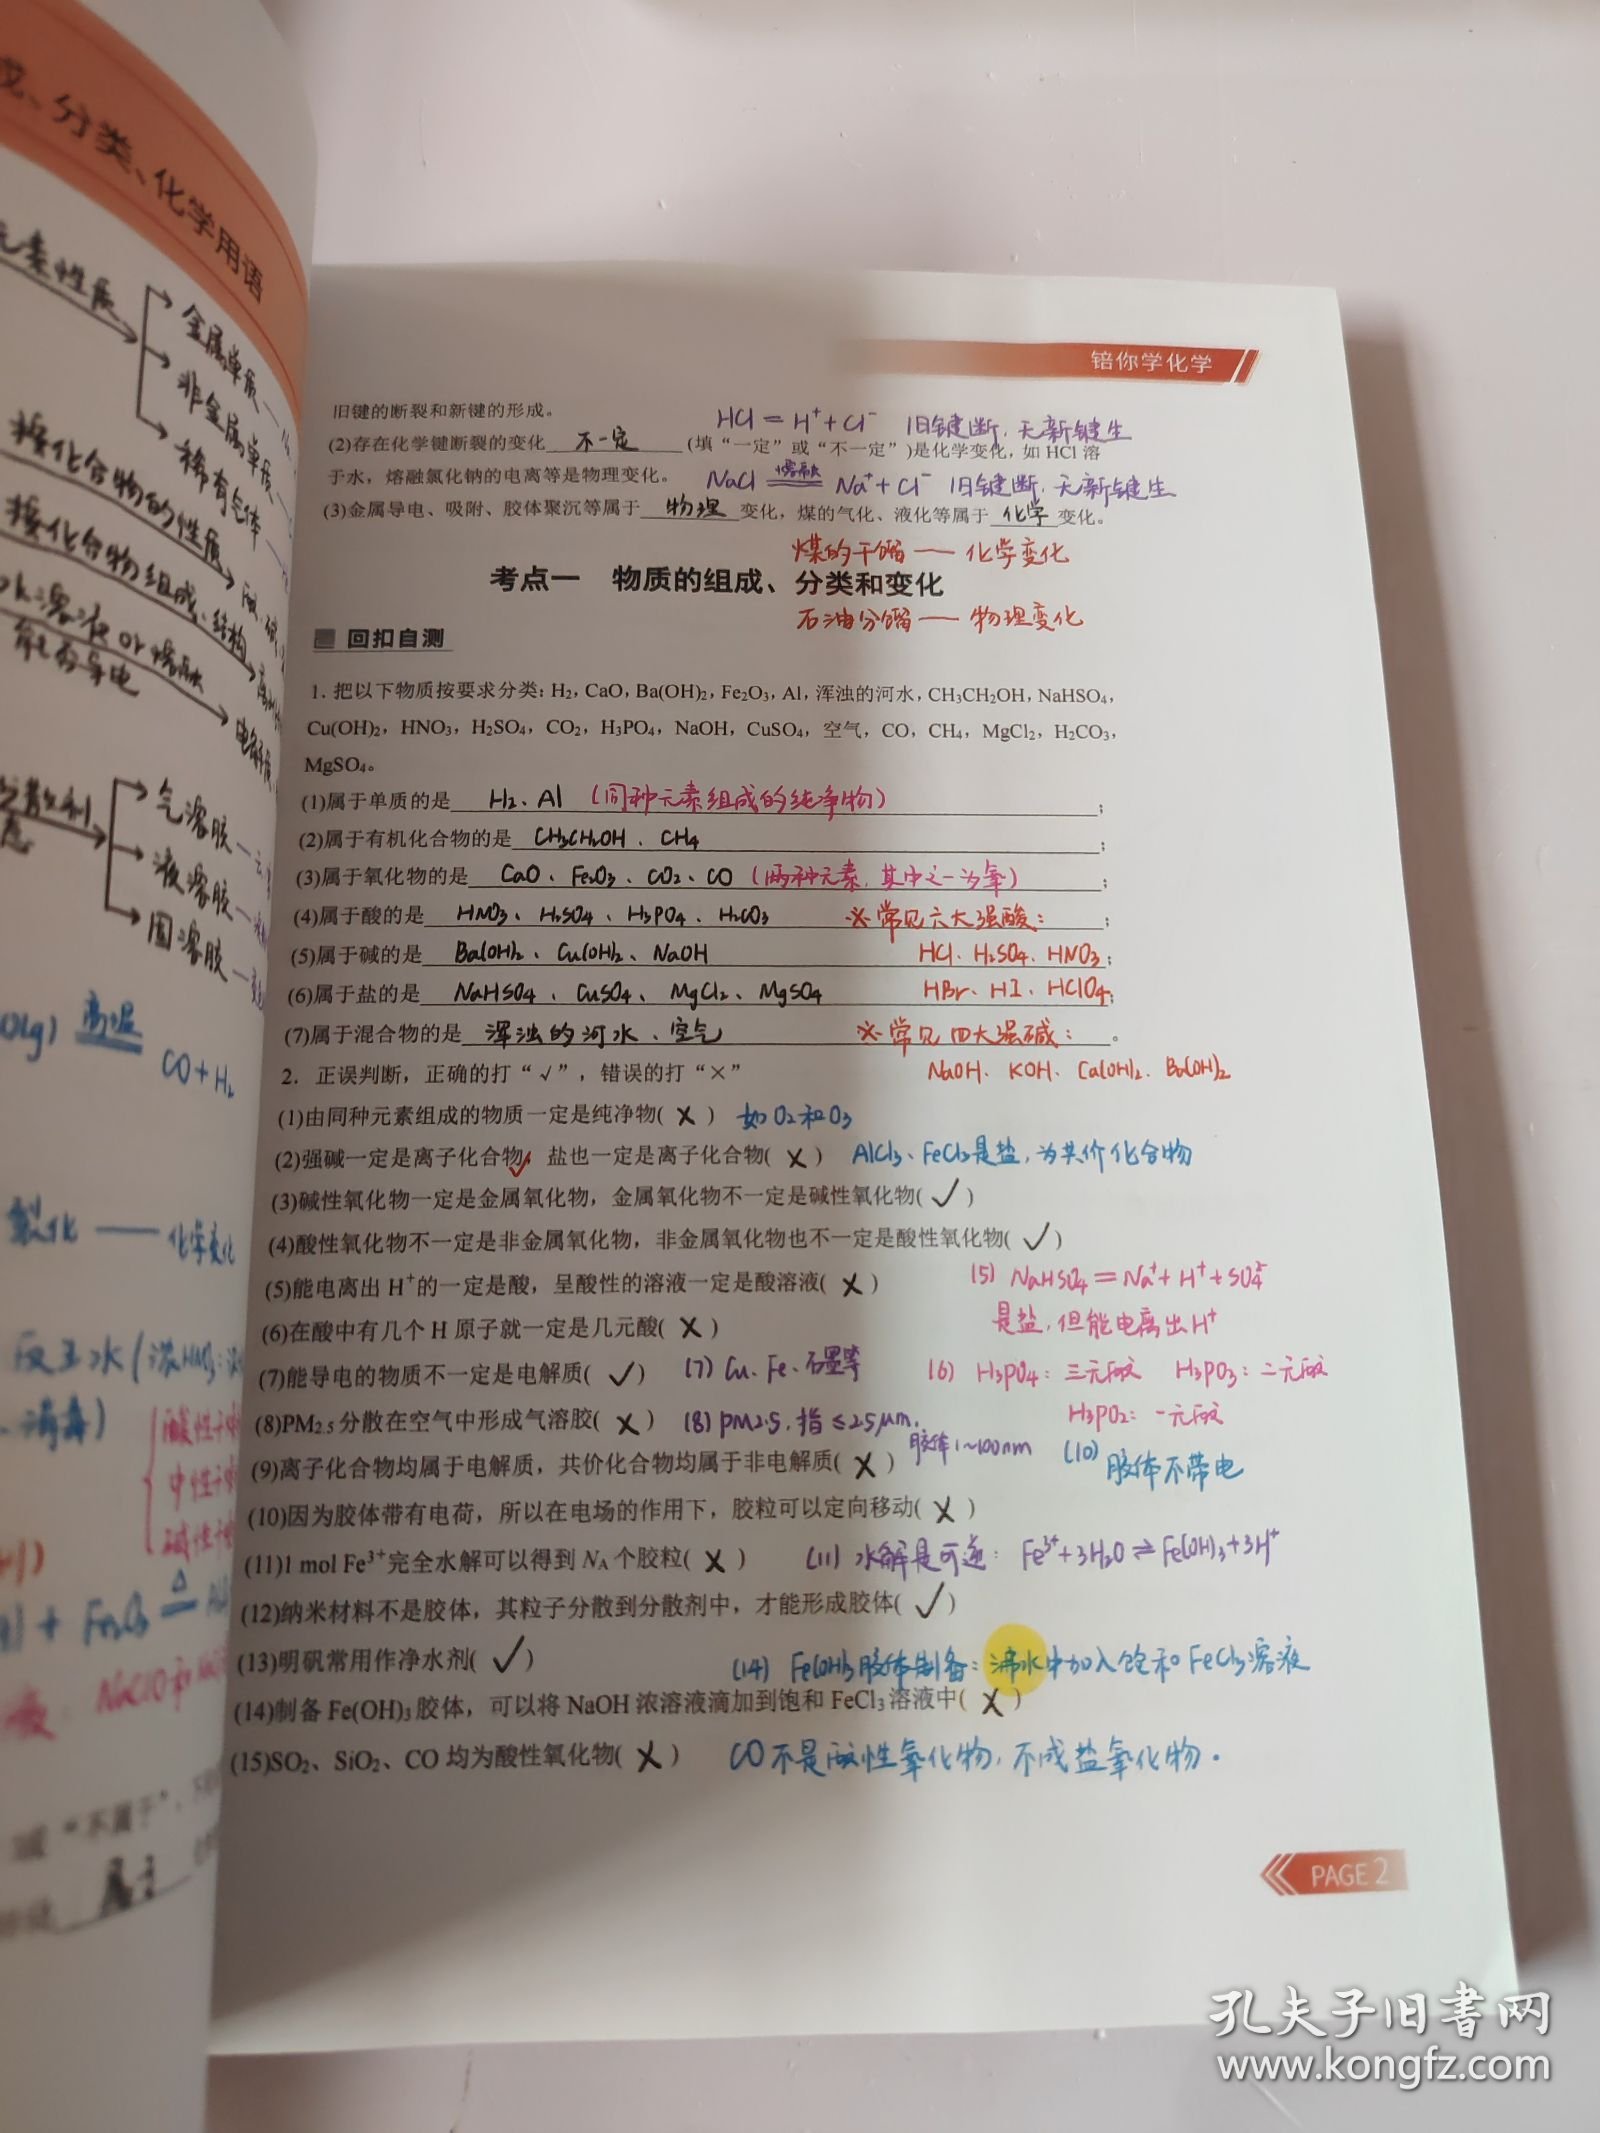 分类、化学用语
元素性质
金属单质
非金属单质
稀有气体
按化合物的性质
按化合物组成、结构
水溶液 or 熔融
能否导电
电解质
气溶胶
液溶胶
固溶胶
高温
CO+H₂
裂化 —— 化学变化
酸性
中性
碱性
NaClO和
“不属于”、
属于
锫你学化学
旧键的断裂和新键的形成。
HCl = H⁺+Cl⁻ 旧键断,无新键生
(2)存在化学键断裂的变化 不一定 (填“一定”或“不一定”)是化学变化,如 HCl 溶
于水,熔融氯化钠的电离等是物理变化。
NaCl 熔融 Na⁺+Cl⁻ 旧键断,无新键生
(3)金属导电、吸附、胶体聚沉等属于 物理 变化,煤的气化、液化等属于 化学 变化。
煤的干馏 —— 化学变化
考点一 物质的组成、分类和变化
石油分馏 —— 物理变化
回扣自测
1. 把以下物质按要求分类: H₂, CaO, Ba(OH)₂, Fe₂O₃, Al, 浑浊的河水, CH₃CH₂OH, NaHSO₄,
Cu(OH)₂, HNO₃, H₂SO₄, CO₂, H₃PO₄, NaOH, CuSO₄, 空气, CO, CH₄, MgCl₂, H₂CO₃,
MgSO₄。
(1)属于单质的是 H₂、Al (同种元素组成的纯净物) ;
(2)属于有机化合物的是 CH₃CH₂OH、CH₄ ;
(3)属于氧化物的是 CaO、Fe₂O₃、CO₂、CO (两种元素,其中之一为氧) ;
(4)属于酸的是 HNO₃、H₂SO₄、H₃PO₄、H₂CO₃ ※常见六大强酸: ;
(5)属于碱的是 Ba(OH)₂、Cu(OH)₂、NaOH HCl、H₂SO₄、HNO₃ ;
(6)属于盐的是 NaHSO₄、CuSO₄、MgCl₂、MgSO₄ HBr、HI、HClO₄ ;
(7)属于混合物的是 浑浊的河水、空气 ※常见四大强碱: 。
NaOH、KOH、Ca(OH)₂、Ba(OH)₂
2. 正误判断,正确的打“√”,错误的打“×”
(1)由同种元素组成的物质一定是纯净物( × ) 如O₂和O₃
(2)强碱一定是离子化合物,盐也一定是离子化合物( × ) AlCl₃、FeCl₃是盐,为共价化合物
(3)碱性氧化物一定是金属氧化物,金属氧化物不一定是碱性氧化物( √ )
(4)酸性氧化物不一定是非金属氧化物,非金属氧化物也不一定是酸性氧化物( √ )
(5)能电离出 H⁺的一定是酸,呈酸性的溶液一定是酸溶液( × ) (5) NaHSO₄ = Na⁺+H⁺+SO₄²⁻
是盐,但能电离出H⁺
(6)在酸中有几个 H 原子就一定是几元酸( × )
(7)能导电的物质不一定是电解质( √ ) (7) Cu、Fe、石墨等 (6) H₃PO₄: 三元酸 H₃PO₃: 二元酸
H₃PO₂: 一元酸
(8)PM₂.₅分散在空气中形成气溶胶( × ) (8) PM2.5,指≤2.5μm,
胶体1~100nm
(9)离子化合物均属于电解质,共价化合物均属于非电解质( × )
(10) 胶体不带电
(10)因为胶体带有电荷,所以在电场的作用下,胶粒可以定向移动( × )
(11)1 mol Fe³⁺完全水解可以得到 Nᴀ 个胶粒( × ) (11) 水解是可逆: Fe³⁺+3H₂O⇌Fe(OH)₃+3H⁺
(12)纳米材料不是胶体,其粒子分散到分散剂中,才能形成胶体( √ )
(13)明矾常用作净水剂( √ )
(14) Fe(OH)₃胶体制备: 沸水中加入饱和FeCl₃溶液
(14)制备 Fe(OH)₃胶体,可以将 NaOH 浓溶液滴加到饱和 FeCl₃溶液中( × )
(15)SO₂、SiO₂、CO 均为酸性氧化物( × ) CO不是酸性氧化物,不成盐氧化物.
PAGE 2
孔夫子旧书网
www.kongfz.com